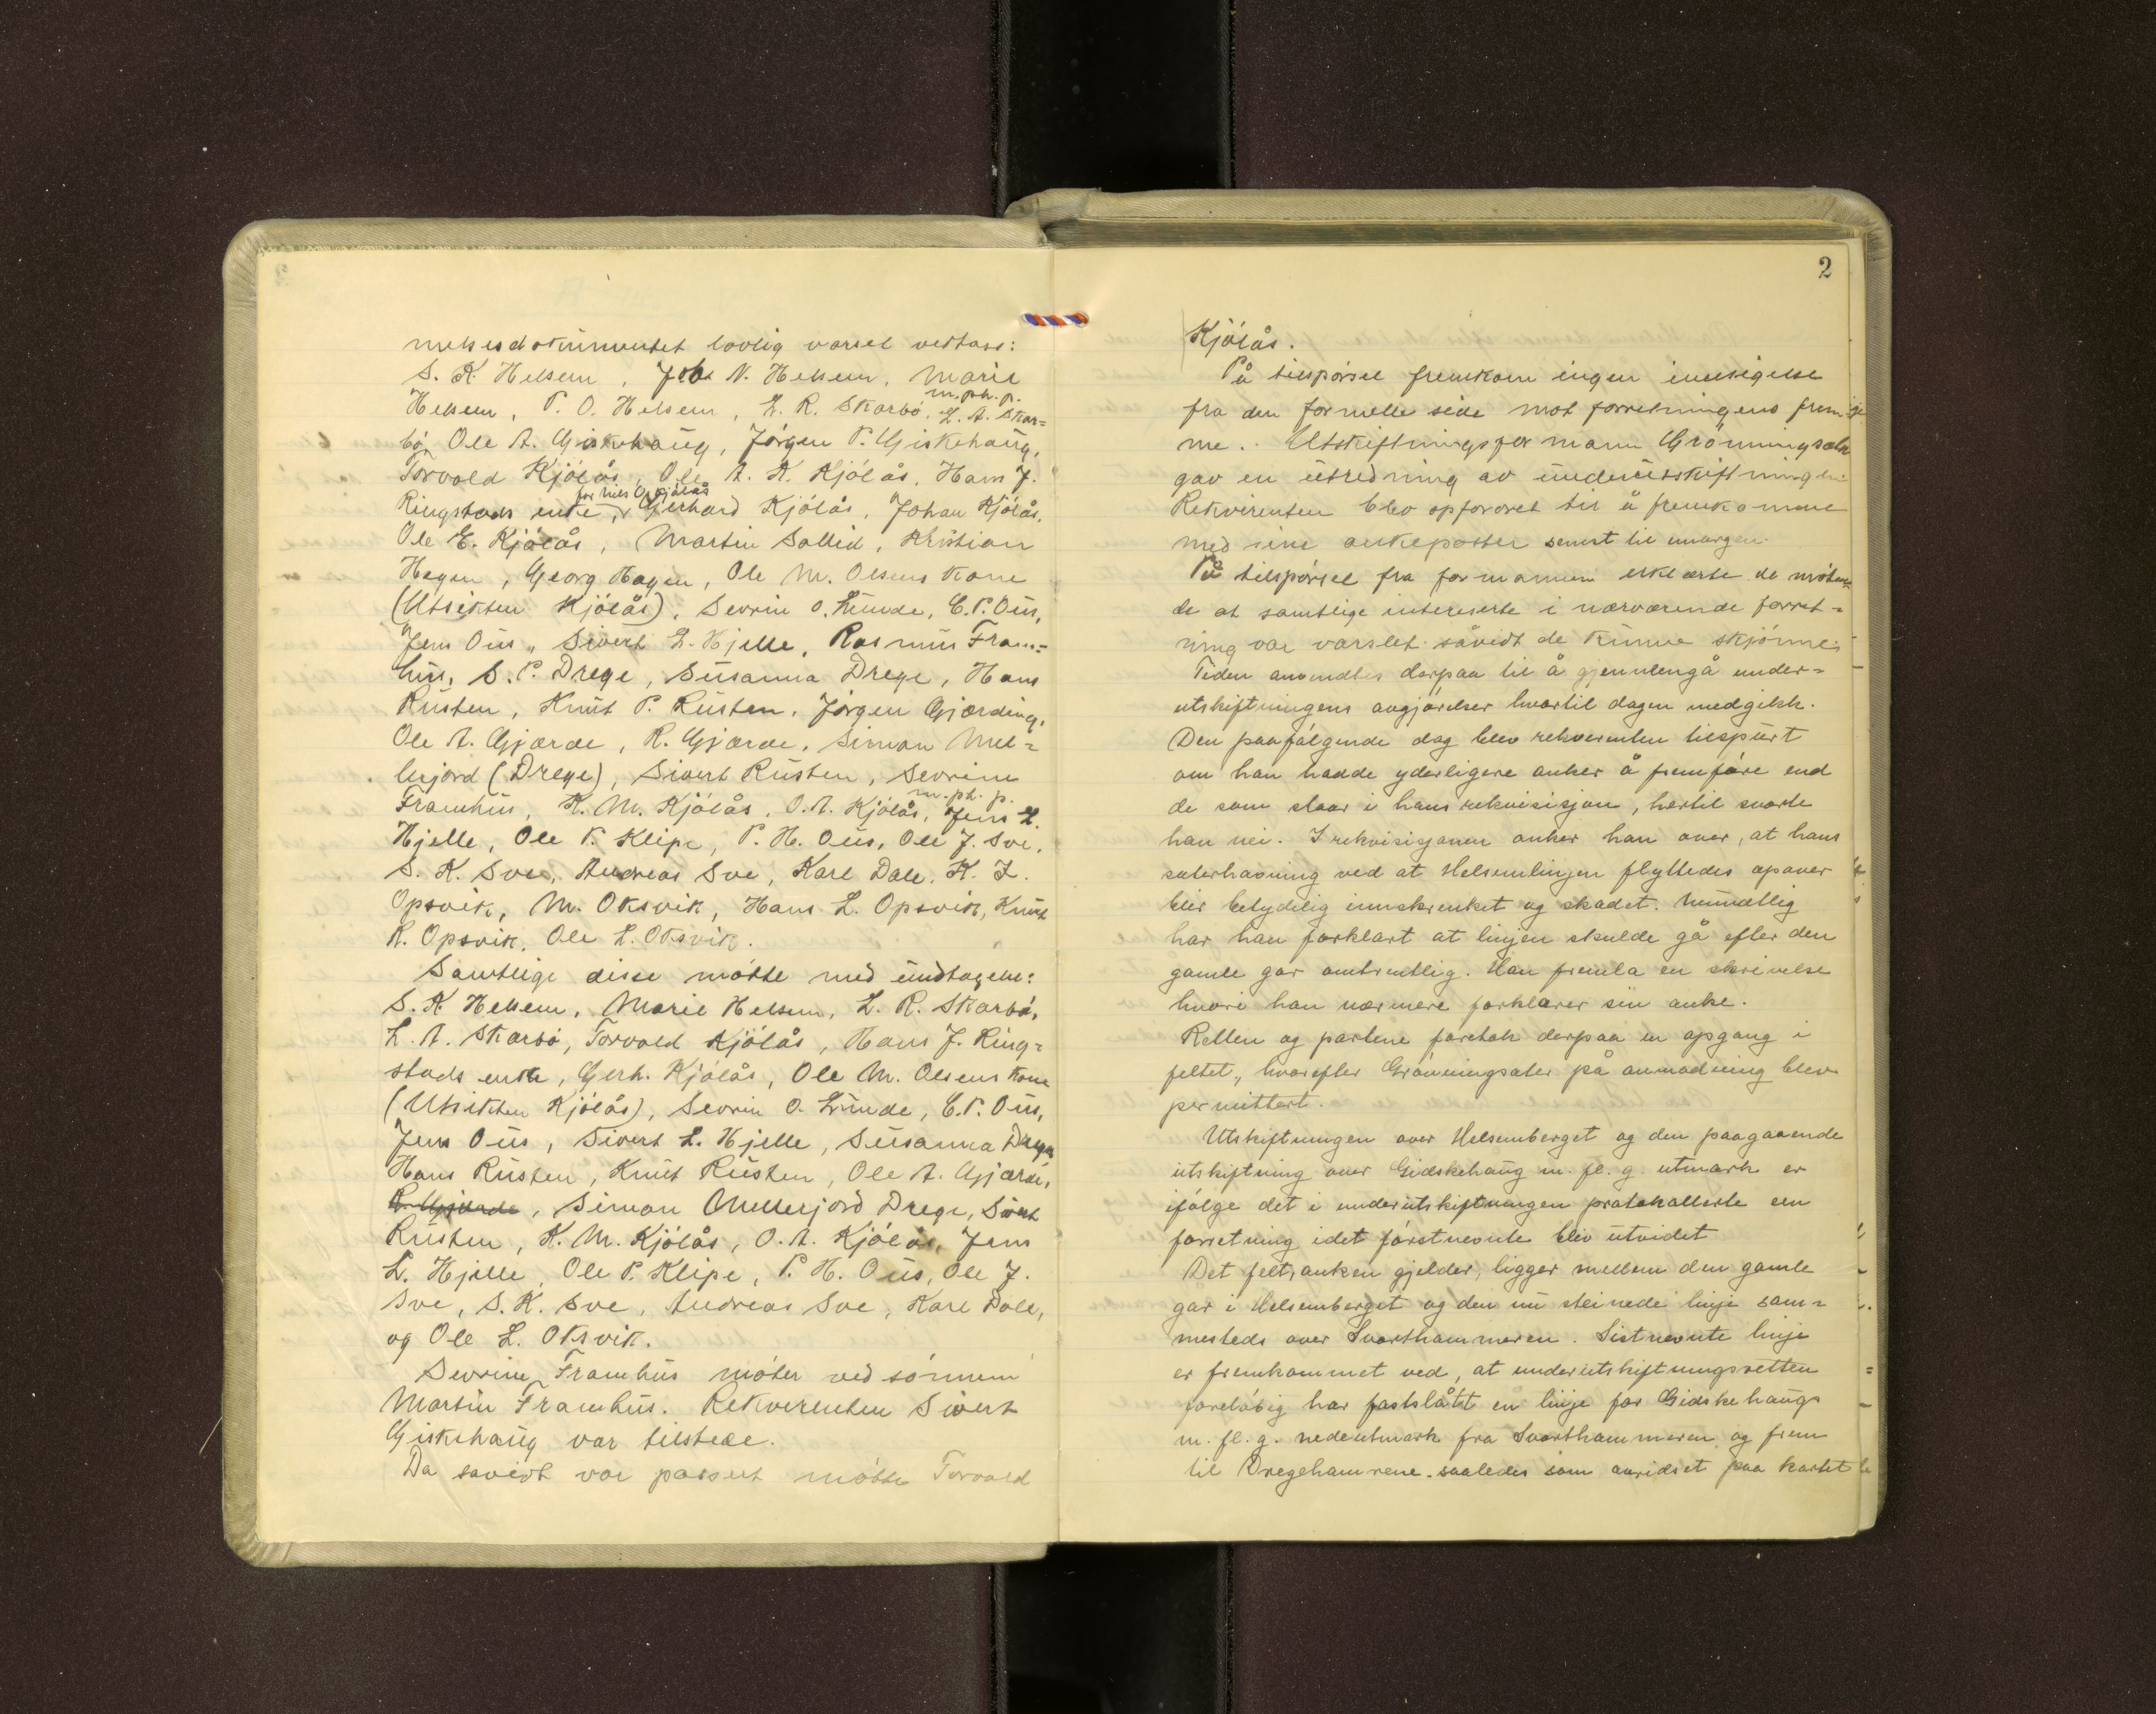 nelsesdokumentet lovlig varsel vedtass:
S. K. Helsem, Joh N. Helsem, Marie
m. ph. p.
Helsem, P. O. Helsem, L. R. Skarbö, L. A. Skar=
bö, Ole A. Giskehaug, Jörgen P. Giskehaug,
Torvald Kjölås, Ole A. K. Kjölås, Hans J.
for Nils O. Kjölås
Ringstads enke, Gerhard Kjölås, Johan Kjölås,
Ole E. Kjölås, Martin Sollid, Kristian
Hagen, Georg Hagen, Ole M. Olsens kone
(Utsikten Kjölås), Sevrin O. Lunde, C. P. Ous,
Jens Ous, Sivert L. Hjelle, Rasmus Fram=
hus, S. P. Drege, Susanna Drege, Hans
Rusten, Knut P. Rusten, Jörgen Gjærding,
Ole A. Gjærde, R. Gjærde, Simon Mel=
lerjord (Drege), Sivert Rusten, Sevrine
m. ph. p.
Framhus, K. M. Kjölås, O. A. Kjölås, Jens L.
Hjelle, Ole P. Klipe, P. H. Ous, Ole J. Sve,
S. K. Sve, Andreas Sve, Karl Dale, K. L.
Opsvik, M. Oksvik, Hans L. Opsvik, Knut
K. Opsvik, Ole L. Oksvik.
Samtlige disse mötte med undtagelse:
S. K. Helsem, Marie Helsem, L. R. Skarbö,
L. A. Skarbö, Torvald Kjölås, Hans J. Ring=
stads enke, Gerh. Kjölås, Ole M. Olsens kone
(Utsikten Kjölås), Sevrin O. Lunde, C. P. Ous,
Jens Ous, Sivert L. Hjelle, Susanna Drege,
Hans Rusten, Knut Rusten, Ole A. Gjærde,
R. Gjærde, Simon Mellerjord Drege, Sivert
Rusten, K. M. Kjölås, O. A. Kjölås, Jens
L. Hjelle, Ole P. Klipe, P. H. Ous, Ole J.
Sve, S. K. Sve, Andreas Sve, Karl Dale,
og Ole L. Oksvik.
Sevrine Framhus möter ved sönnen
Martin Framhus. Rekvirenten Sivert
Giskehaug var tilstede.
Da savidt var passert mötte Torvald
2
Kjölås.
På tilspörsel fremkom ingen innsigelse
fra den formelle side mot forretningens frem=
me. Utskiftningsformann Grönningsæter
gav en utredning av underutskiftningen.
Rekvirenten blev opfordret til å fremkomme
med sine ankeposter senest til imorgen.
På tilspörsel fra formannen erklærte de möten=
de at samtlige intereserte i nærværende forret=
ning var varslet såvidt de kunne skjönne.
Tiden anvendtes derpaa til å gjennemgå under=
utskiftningens avgjörelser hvortil dagen medgikk.
Den paafölgende dag blev rekvirenten tilspurt
om han hadde yderligere anker å fremföre end
de som staar i hans rekvisisjon, hertil svarte
han nei. I rekvisisjonen anker han over, at hans
sæterhavning ved at Helsemlinjen flyttedes opover
blir betydelig innskrenket og skadet. Mundtlig
har han forklart at linjen skulde gå efter den
gamle gar omtrentlig. Han fremla en skrivelse
hvori han nærmere forklarer sin anke.
Retten og partene foretok derpaa en opgang i
feltet, hvorefter Grönningsæter på anmodning blev
permittert.
Utskiftningen over Helsemberget og den paagaaende
utskiftning over Gidskehaug m. fl. g. utmark er
ifölge det i underutskiftningen protokollerte een
forretning idet förstnevnte blev utvidet
Det felt, anken gjelder, ligger mellem den gamle
gar i Helsemberget og den nu steinede linje sam=
mesteds over Svarthammeren. Sistnevnte linje
er fremkommet ved, at underutskiftningsretten
forelöbig har fastslått en linje for Gidskehaugs
m. fl. g. nedeutmark fra Svarthammeren og frem
til Dregehamrene saaledes som avridset paa kartet